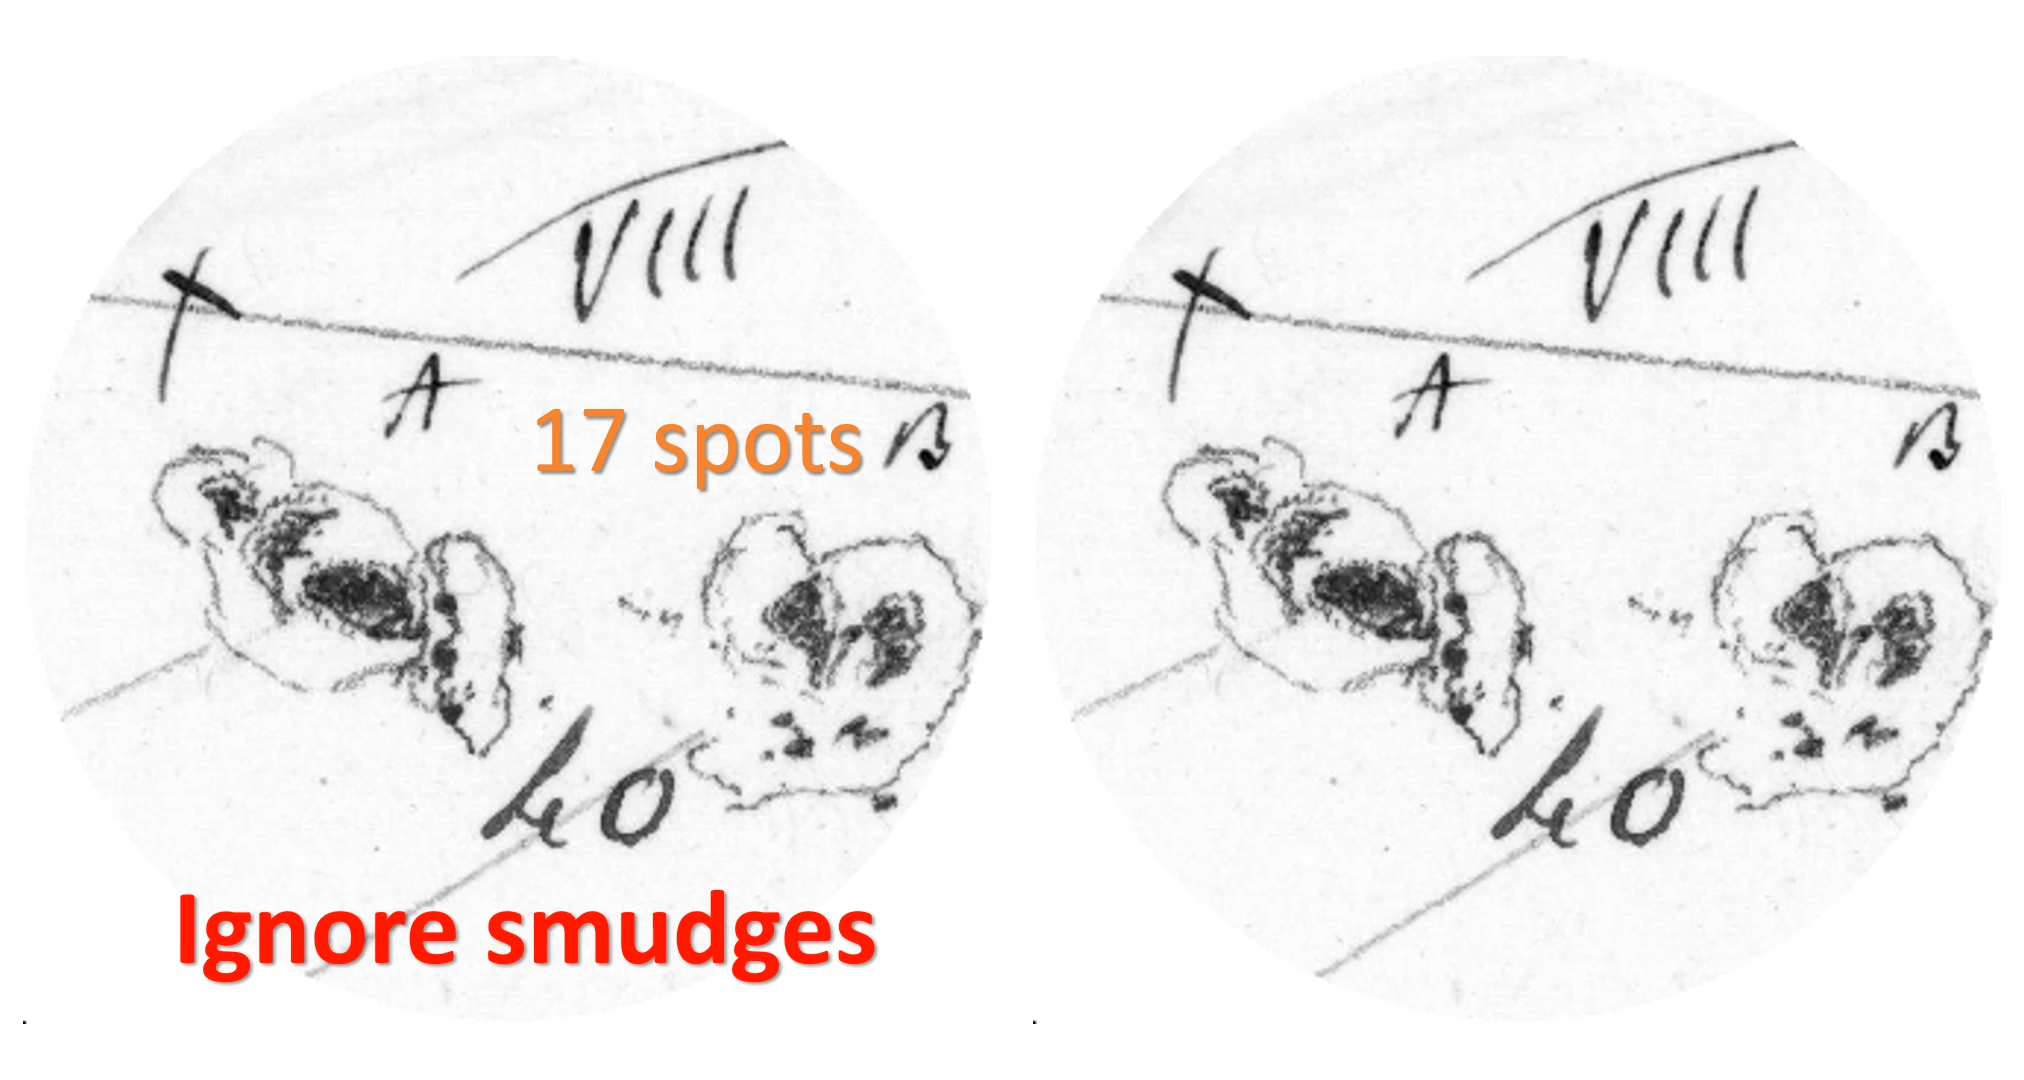 VIII
A
17 spots B
Ignore smudges
VIII
A
B